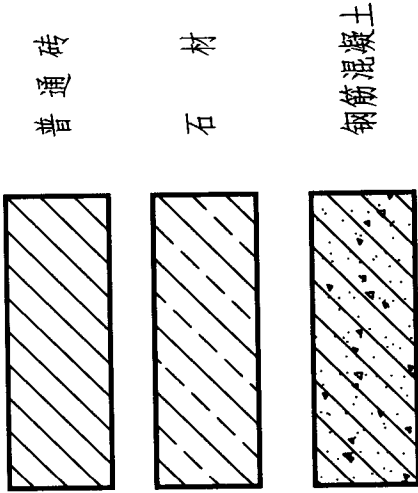 普通砖
石材
钢筋混凝土